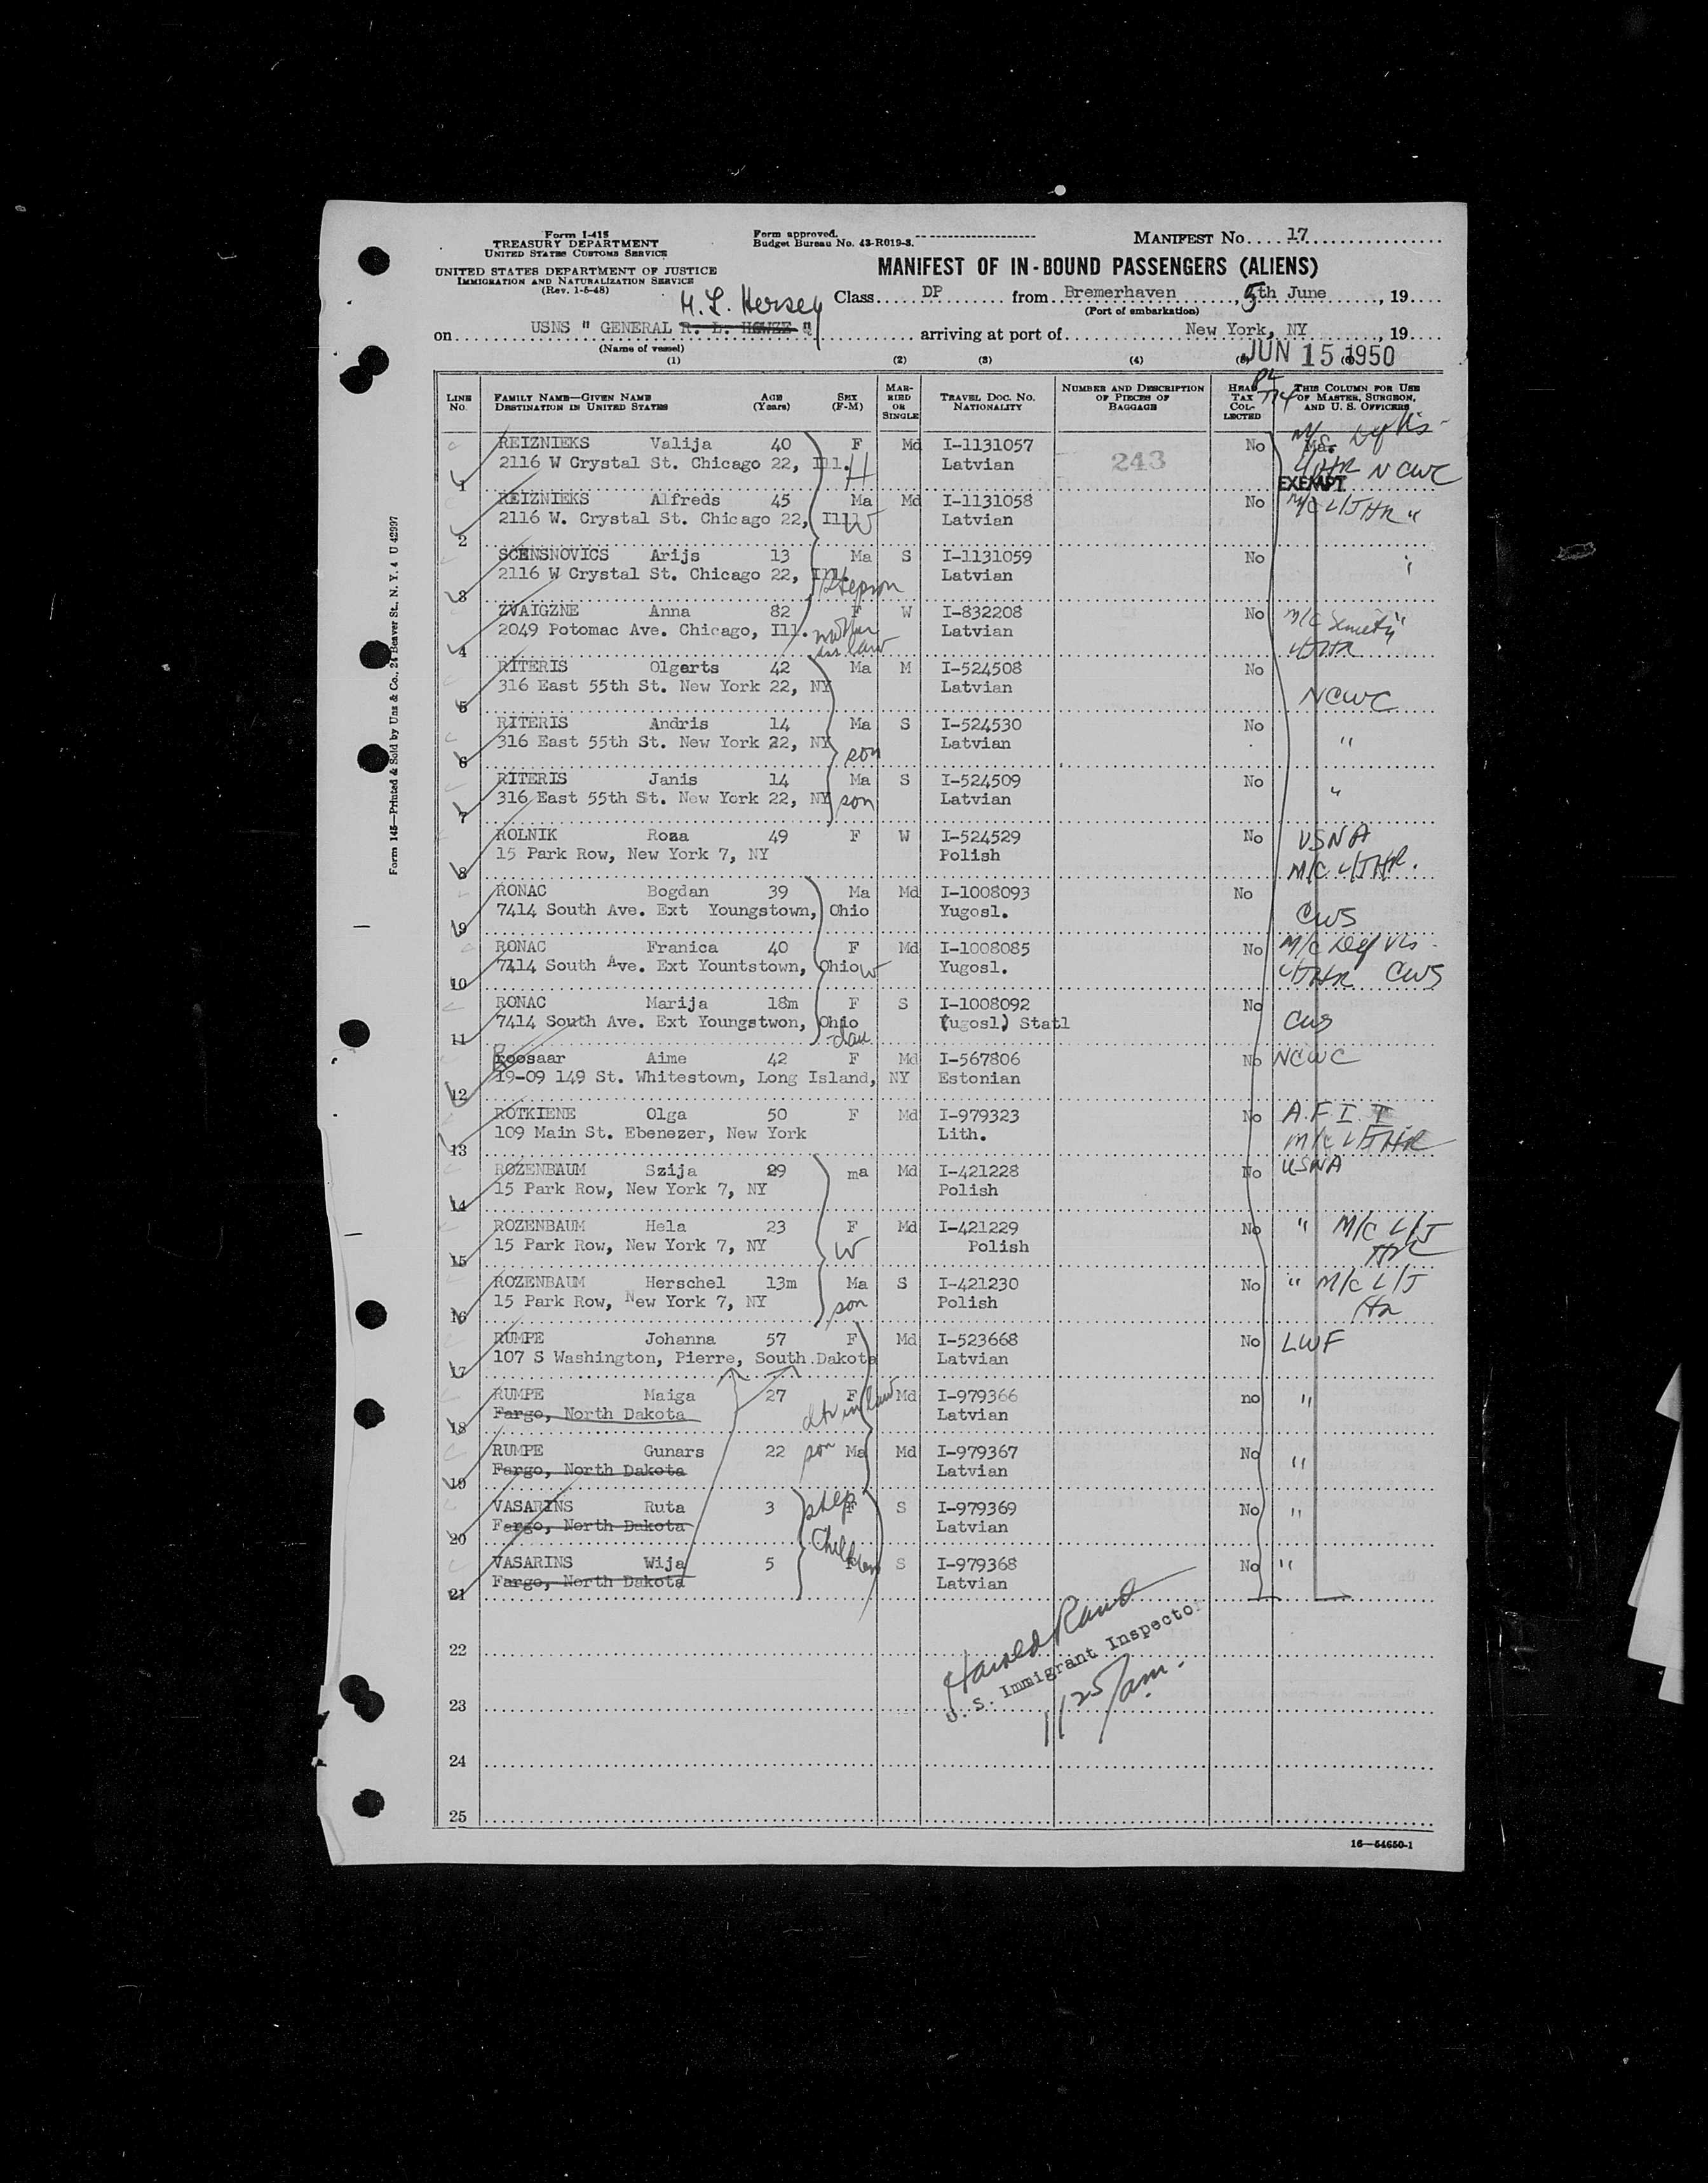 Form I-415
TREASURY DEPARTMENT
UNITED STATES CUSTOMS SERVICE
UNITED STATES DEPARTMENT OF JUSTICE
IMMIGRATION AND NATURALIZATION SERVICE
(Rev. 1-5-48)
Form approved.
Budget Bureau No. 43-R019-3.
MANIFEST No. 17
MANIFEST OF IN-BOUND PASSENGERS (ALIENS)
M. L. Hersey
Class DP from Bremerhaven, 5th June, 19
(Port of embarkation)
on USNS " GENERAL R. L. HOWZE " arriving at port of New York, NY, 19
(Name of vessel)
JUN 15 1950
(1) (2) (3) (4)
LINE No. FAMILY NAME—GIVEN NAME DESTINATION IN UNITED STATES AGE (Years) SEX (F-M) MARRIED OR SINGLE TRAVEL DOC. NO. NATIONALITY NUMBER AND DESCRIPTION OF PIECES OF BAGGAGE HEAD TAX COLLECTED THIS COLUMN FOR USE OF MASTER, SURGEON, AND U. S. OFFICERS
REIZNIEKS Valija 40 F Md I-1131057 No
1 2116 W Crystal St. Chicago 22, Ill. H Latvian 243 NCWC
EXEMPT
REIZNIEKS Alfreds 45 Ma Md I-1131058 No M/C L/J HR "
2 2116 W. Crystal St. Chicago 22, Ill W Latvian
SCENSNOVICS Arijs 13 Ma S I-1131059 No
3 2116 W Crystal St. Chicago 22, Ill. Stepson Latvian "
ZVAIGZNE Anna 82 F W I-832208 No M/C
4 2049 Potomac Ave. Chicago, Ill. mother in law Latvian
RITERIS Olgerts 42 Ma M I-524508 No
5 316 East 55th St. New York 22, NY Latvian NCWC
RITERIS Andris 14 Ma S I-524530 No
6 316 East 55th St. New York 22, NY son Latvian "
RITERIS Janis 14 Ma S I-524509 No
7 316 East 55th St. New York 22, NY son Latvian "
ROLNIK Roza 49 F W I-524529 No USNA
8 15 Park Row, New York 7, NY Polish M/C L/J HR.
RONAC Bogdan 39 Ma Md I-1008093 No
9 7414 South Ave. Ext Youngstown, Ohio Yugosl. CWS
RONAC Franica 40 F Md I-1008085 No M/C Def Vis
10 7414 South Ave. Ext Yountstown, Ohio W Yugosl. L/J HR CWS
RONAC Marija 18m F S I-1008092 No
11 7414 South Ave. Ext Youngstwon, Ohio dau (Yugosl) Statl CWS
Roosaar Aime 42 F Md I-567806 No NCWC
12 19-09 149 St. Whitestown, Long Island, NY Estonian
ROTKIENE Olga 50 F Md I-979323 No A.F.I.I
13 109 Main St. Ebenezer, New York Lith. M/C L/J HR
ROZENBAUM Szija 29 ma Md I-421228 No USNA
14 15 Park Row, New York 7, NY Polish
ROZENBAUM Hela 23 F Md I-421229 No " M/C L/J
15 15 Park Row, New York 7, NY W Polish HR
ROZENBAUM Herschel 13m Ma S I-421230 No " M/C L/J
16 15 Park Row, New York 7, NY son Polish HR
RUMPE Johanna 57 F Md I-523668 No LWF
17 107 S Washington, Pierre, South Dakota Latvian
RUMPE Maiga 27 F Md I-979366 no "
18 Fargo, North Dakota dtr in law Latvian
RUMPE Gunars 22 son Ma Md I-979367 No "
19 Fargo, North Dakota Latvian
VASARINS Ruta 3 F S I-979369 No "
20 Fargo, North Dakota step Latvian
VASARINS Wija 5 F S I-979368 No "
21 Fargo, North Dakota Children Latvian
22
23
24
25
Harold Rand
U. S. Immigrant Inspector
1125/am.
16—54650-1
Form 145—Printed & Sold by Unz & Co., 24 Beaver St., N. Y. 4 U 42997